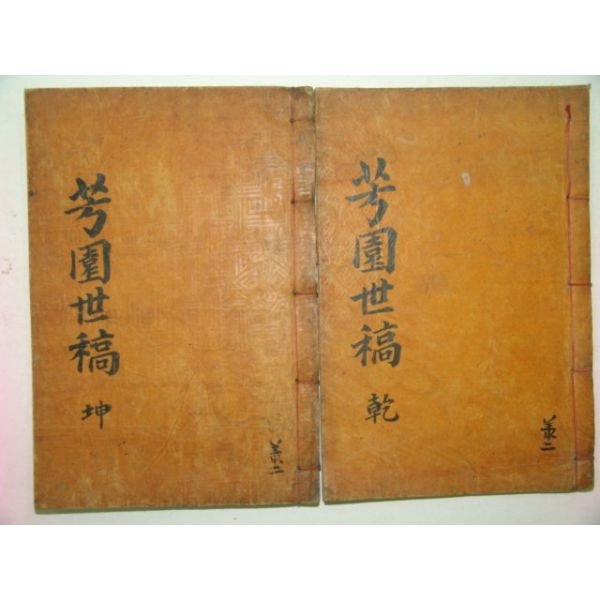 芳園世稿 乾
共二
芳園世稿 坤
共二